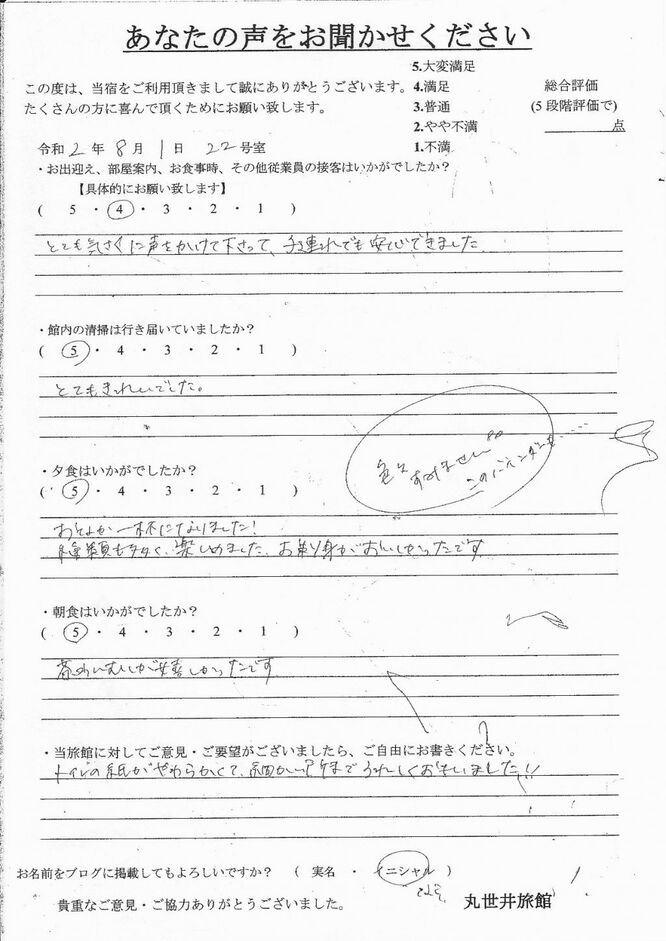 あなたの声をお聞かせください
5.大変満足
この度は、当宿をご利用頂きまして誠にありがとうございます。 4.満足 総合評価
たくさんの方に喜んで頂くためにお願い致します。 3.普通 (5段階評価で)
2.やや不満 点
令和2年8月1日 22号室 1.不満
・お出迎え、部屋案内、お食事時、その他従業員の接客はいかがでしたか?
【具体的にお願い致します】
( 5 ・ 4 ・ 3 ・ 2 ・ 1 )
とても気さくに声をかけて下さって、子連れでも安心できました
・館内の清掃は行き届いていましたか?
( 5 ・ 4 ・ 3 ・ 2 ・ 1 )
とてもきれいでした。
色々
すみません
このペンが
・夕食はいかがでしたか?
( 5 ・ 4 ・ 3 ・ 2 ・ 1 )
おなか一杯になりました!
種類も多く、楽しめました。お刺身がおいしかったです
・朝食はいかがでしたか?
( 5 ・ 4 ・ 3 ・ 2 ・ 1 )
茶わんむしが嬉しかったです
・当旅館に対してご意見・ご要望がございましたら、ご自由にお書きください。
トイレの紙がやわらかくて、細かい所までうれしくおもいました!!
お名前をブログに掲載してもよろしいですか? ( 実名 ・ イニシャル )
貴重なご意見・ご協力ありがとうございました。 丸世井旅館